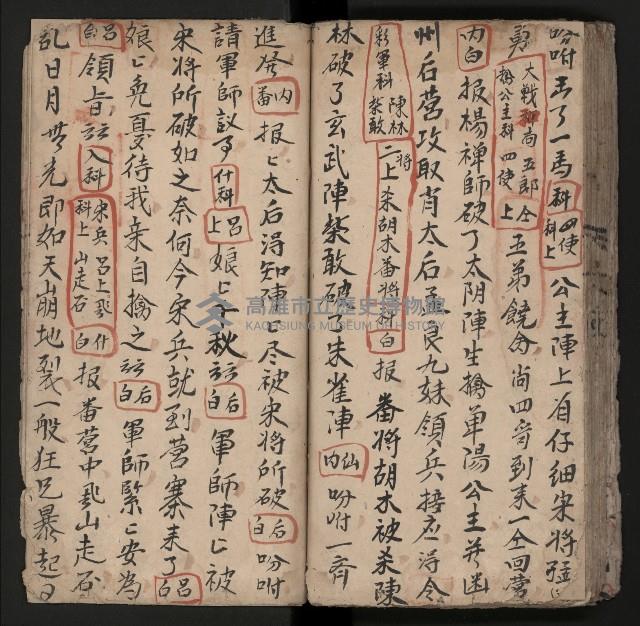 吩咐王了一馬科四使科上公主陣上有仔細宋將強
大戰和尚五郎仝
我公主科四使上五弟饒命尚四首到來一仝回營
内白报楊禅師破了太阴陣生擒单陽公主并函
州后营攻取肖太后孟良九妹領兵接应得令
彩軍科陳林柴敢二將上杀胡木番將科白报番將胡木被杀陳
林破了玄武陣柴敢破了朱雀陣仙内吩咐一齊
進発内番报匕太后得知陣匕尽被宋將所破后白吩咐
請軍師議事什科呂上娘匕千秋云云后白軍師陣匕被
宋将所破如之奈何今宋兵就到营寨来了呂白
娘匕免憂待我亲自擒之云云后白軍師緊匕安為
呂白領旨云云入科宋兵呂上飛什科上山走石白报番营中飛山走石
乱日月無光即如天崩地裂一般狂風暴起
高雄市立歷史博物館
KAOHSIUNG MUSEUM OF HISTORY